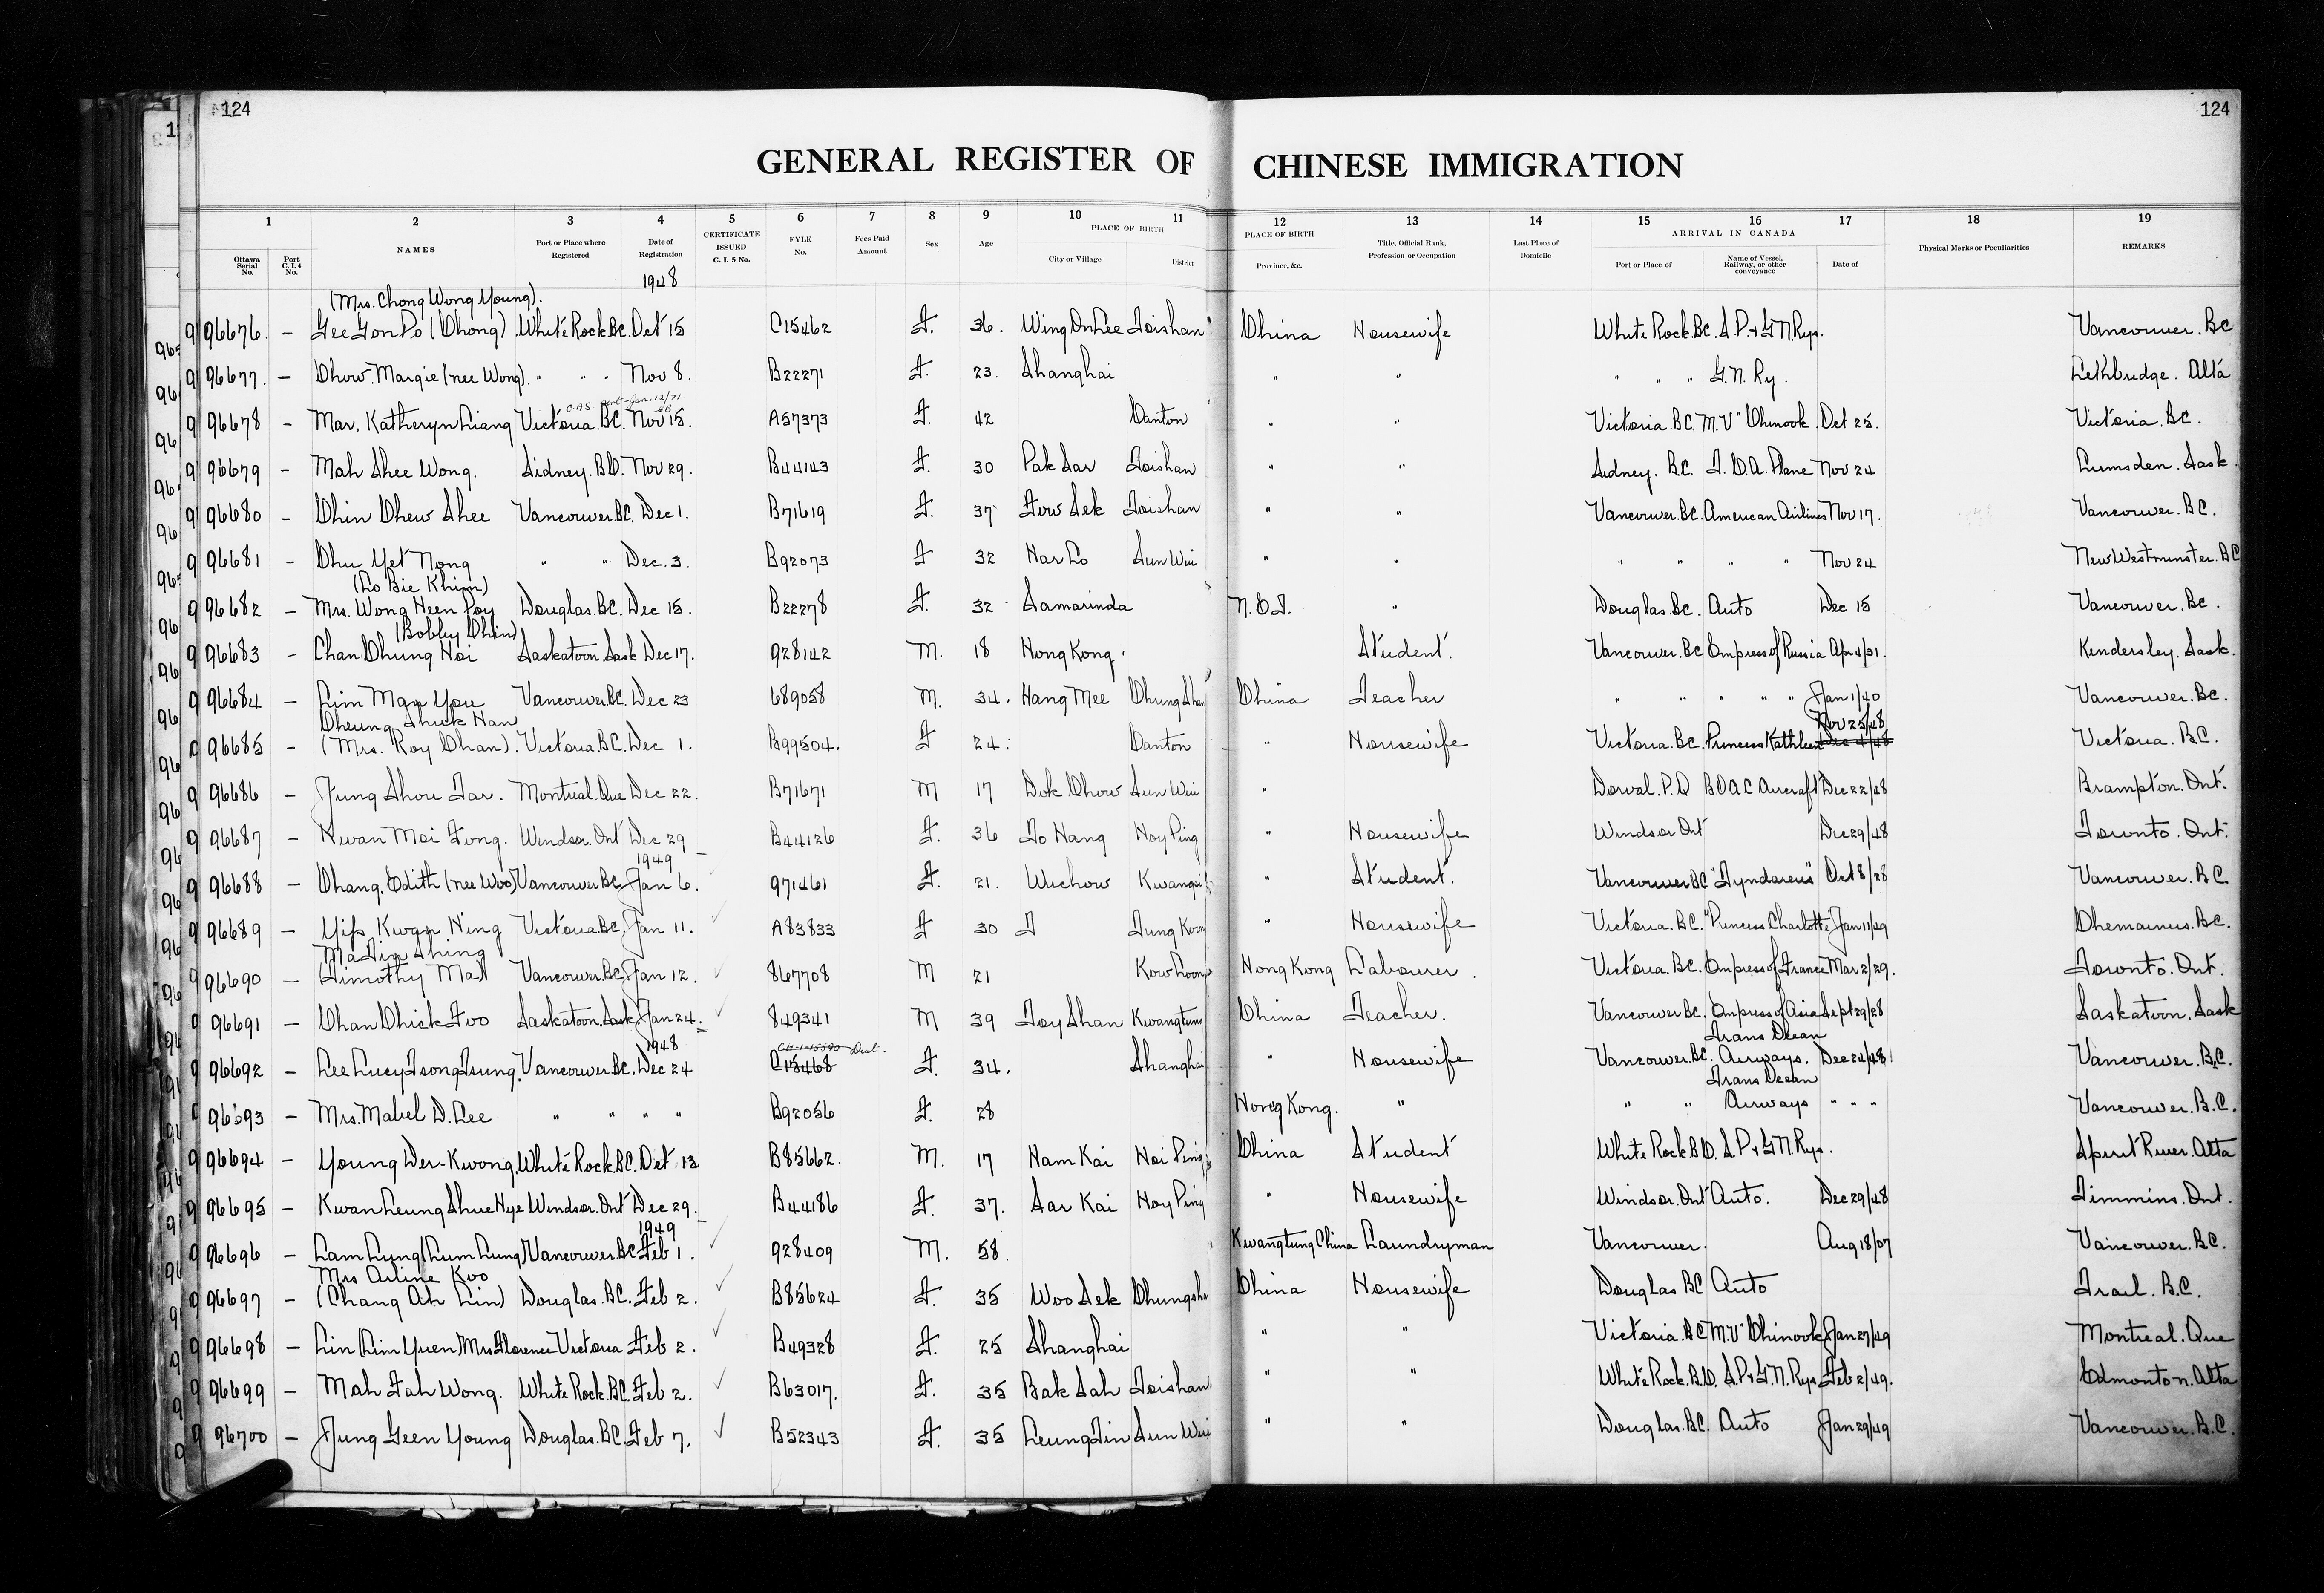 124
124
GENERAL REGISTER OF CHINESE IMMIGRATION
1 2 3 4 5 6 7 8 9 10 11 12 13 14 15 16 17 18 19
Ottawa Serial No. Port C. I. 4 No. NAMES Port or Place where Registered Date of Registration CERTIFICATE ISSUED C. I. 5 No. FYLE No. Fees Paid Amount Sex Age PLACE OF BIRTH City or Village District PLACE OF BIRTH Province, &c. Title, Official Rank, Profession or Occupation Last Place of Domicile ARRIVAL IN CANADA Port or Place of Name of Vessel, Railway, or other conveyance Date of Physical Marks or Peculiarities REMARKS
1948
(Mrs. Chong Wong Young).
96676. – Gee Gon Po (Chong). White Rock. B.C. Oct 15 C15462 F. 36. Wing On Lee Toishan China Housewife White Rock. B.C. S.P. & G.N. Rys. Vancouver. B.C.
96677. – Chow. Margie (nee Wong). " " " Nov 8. B22271 F. 23. Shanghai " " " " " G.N. Ry. Lethbridge. Alta
96678 – Mar, Katheryn Liang Victoria. B.C. Nov 15. A57373 F. 42 Canton " " Victoria. B.C. M.V" Chinook. Oct 25. Victoria. B.C.
96679 – Mah Shee Wong. Sidney. B.C. Nov 29. B44143 F. 30 Pak Sar Toishan " " Sidney. B.C. T.C.A. Plane Nov 24 Lumsden. Sask.
96680 – Chin Chew Shee Vancouver. B.C. Dec 1. B71619 F. 37 Fow Sek Toishan " " Vancouver. B.C. American Airlines Nov 17. Vancouver. B.C.
96681 – Chu Yet Nong " " Dec. 3. B92073 F 32 Har Lo Sun Wui " " " " " " Nov 24 New Westminster. B.C.
(Lo Bie Khim)
96682 – Mrs. Wong Heen Poy Douglas. B.C. Dec 15. B22278 F. 32 Samarinda N.E.I. " Douglas. B.C. Auto Dec 15 Vancouver. B.C.
(Bobby Chin)
96683 – Chan Chung Hoi Saskatoon. Sask Dec 17. 928142 M. 18 Hong Kong. Student. Vancouver. B.C. Empress of Russia Apr 4/31. Kindersley. Sask.
96684 – Lim Man You Vancouver. B.C. Dec 23 689058 M. 34. Hang Mee Chung Shan China Teacher " " " " " Jan 1/40 Vancouver. B.C.
Cheung Shuk Han Nov 25/48
96685 – (Mrs. Roy Chan). Victoria. B.C. Dec 1. B99504. F 24. Canton " Housewife Victoria. B.C. Princess Kathleen Dec 4/48 Victoria. B.C.
96686 – Jung Shou Jar. Montreal. Que Dec 22. B71671 M 17 Dok Chow Sun Wui " Dorval. P.Q B.O.A.C Aircraft Dec 22/48 Brampton. Ont.
96687 – Kwan Moi Fong. Windsor. Ont Dec 29 B44126 F. 36 To Hang Hoy Ping " Housewife Windsor Ont Dec 29/48 Toronto. Ont.
1949
96688 – Chang. Edith (nee Woo) Vancouver B.C. Jan 6. 971461 F. 21. Wuchow Kwangsi " Student. Vancouver B.C "Tyndareus" Oct 8/28 Vancouver. B.C.
96689 – Yip Kwan Hing Victoria. B.C. Jan 11. A83833 F 30 Tung Koon " Housewife Victoria. B.C. "Princess Charlotte" Jan 11/49 Chemainus. B.C.
Ma Tim Shing
96690 – Timothy Mah Vancouver. B.C. Jan 12. 867708 M 21 Kowloon Hong Kong Labourer. Victoria. B.C. Empress of France Mar 2/29. Toronto. Ont.
96691 – Chan Chick Foo Saskatoon. Sask. Jan 24. 849341 M 39 Toy Shan Kwangtung China Teacher. Vancouver B.C. Empress of Asia Sept 29/28 Saskatoon. Sask
1948 Trans Ocean
96692 – Lee Lucy Tsong Tsung. Vancouver. B.C. Dec 24 C15468 F. 34. Shanghai " Housewife Vancouver. B.C. Airways. Dec 24/48 Vancouver. B.C.
Trans Ocean
96693 – Mrs. Mabel D. Lee " " " " B92056 F. 28 Hong Kong. " " " Airways " " " Vancouver. B.C.
96694 – Young Der-Kwong. White Rock. B.C. Oct 13 B85662. M. 17 Ham Kai Hoi Ping China Student White Rock. B.C. S.P. & G.N. Rys. Spirit River. Alta
96695 – Kwan Leung Shue Hye Windsor. Ont Dec 29. B44186 F. 37. Sar Kai Hoy Ping " Housewife Windsor. Ont Auto. Dec 29/48 Timmins. Ont.
1949
96696 – Lam Lung (Lum Lung) Vancouver. B.C. Feb 1. 928409 M. 58. Kwangtung China Laundryman Vancouver. Aug 18/07 Vancouver. B.C.
Mrs Arline Koo
96697 – (Chang Ah Lin) Douglas. B.C. Feb 2. B85624 F. 35 Woo Sek Chungshan China Housewife Douglas B.C Auto Trail. B.C.
96698 – Lin (Lim Yuen) Mrs Florence Victoria Feb 2. B49328 F. 25 Shanghai " " Victoria. B.C M.V" Chinook Jan 27/49 Montreal. Que
96699 – Mah Fah Wong. White Rock. B.C. Feb 2. B63017. F. 35 Bak Sah Toishan " " White Rock. B.C. S.P. & G.N. Rys Feb 2/49. Edmonton. Alta
96700 – Jung Geen Young Douglas. B.C. Feb 7. B52343 F. 35 Leung Tin Sun Wui " " Douglas. B.C. Auto Jan 29/49 Vancouver. B.C.